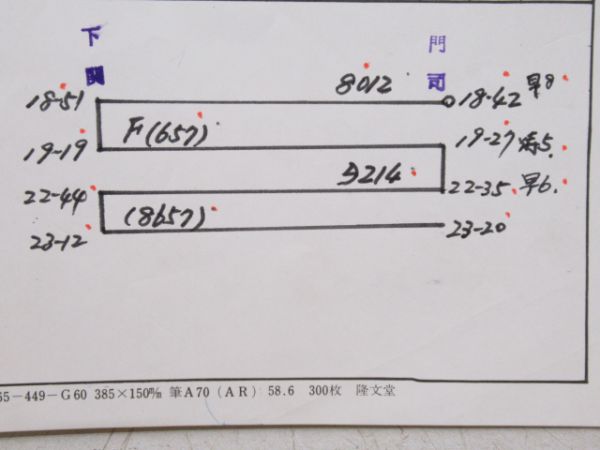 下関
門司
8012
18-51
18-42 早8
F(657)
19-19
19-27 5.
9214
22-44
22-35. 早6.
(8657)
23-12
23-20
65-449-G60 385×150㎜ 筆A70 (AR) 58.6 300枚 隆文堂